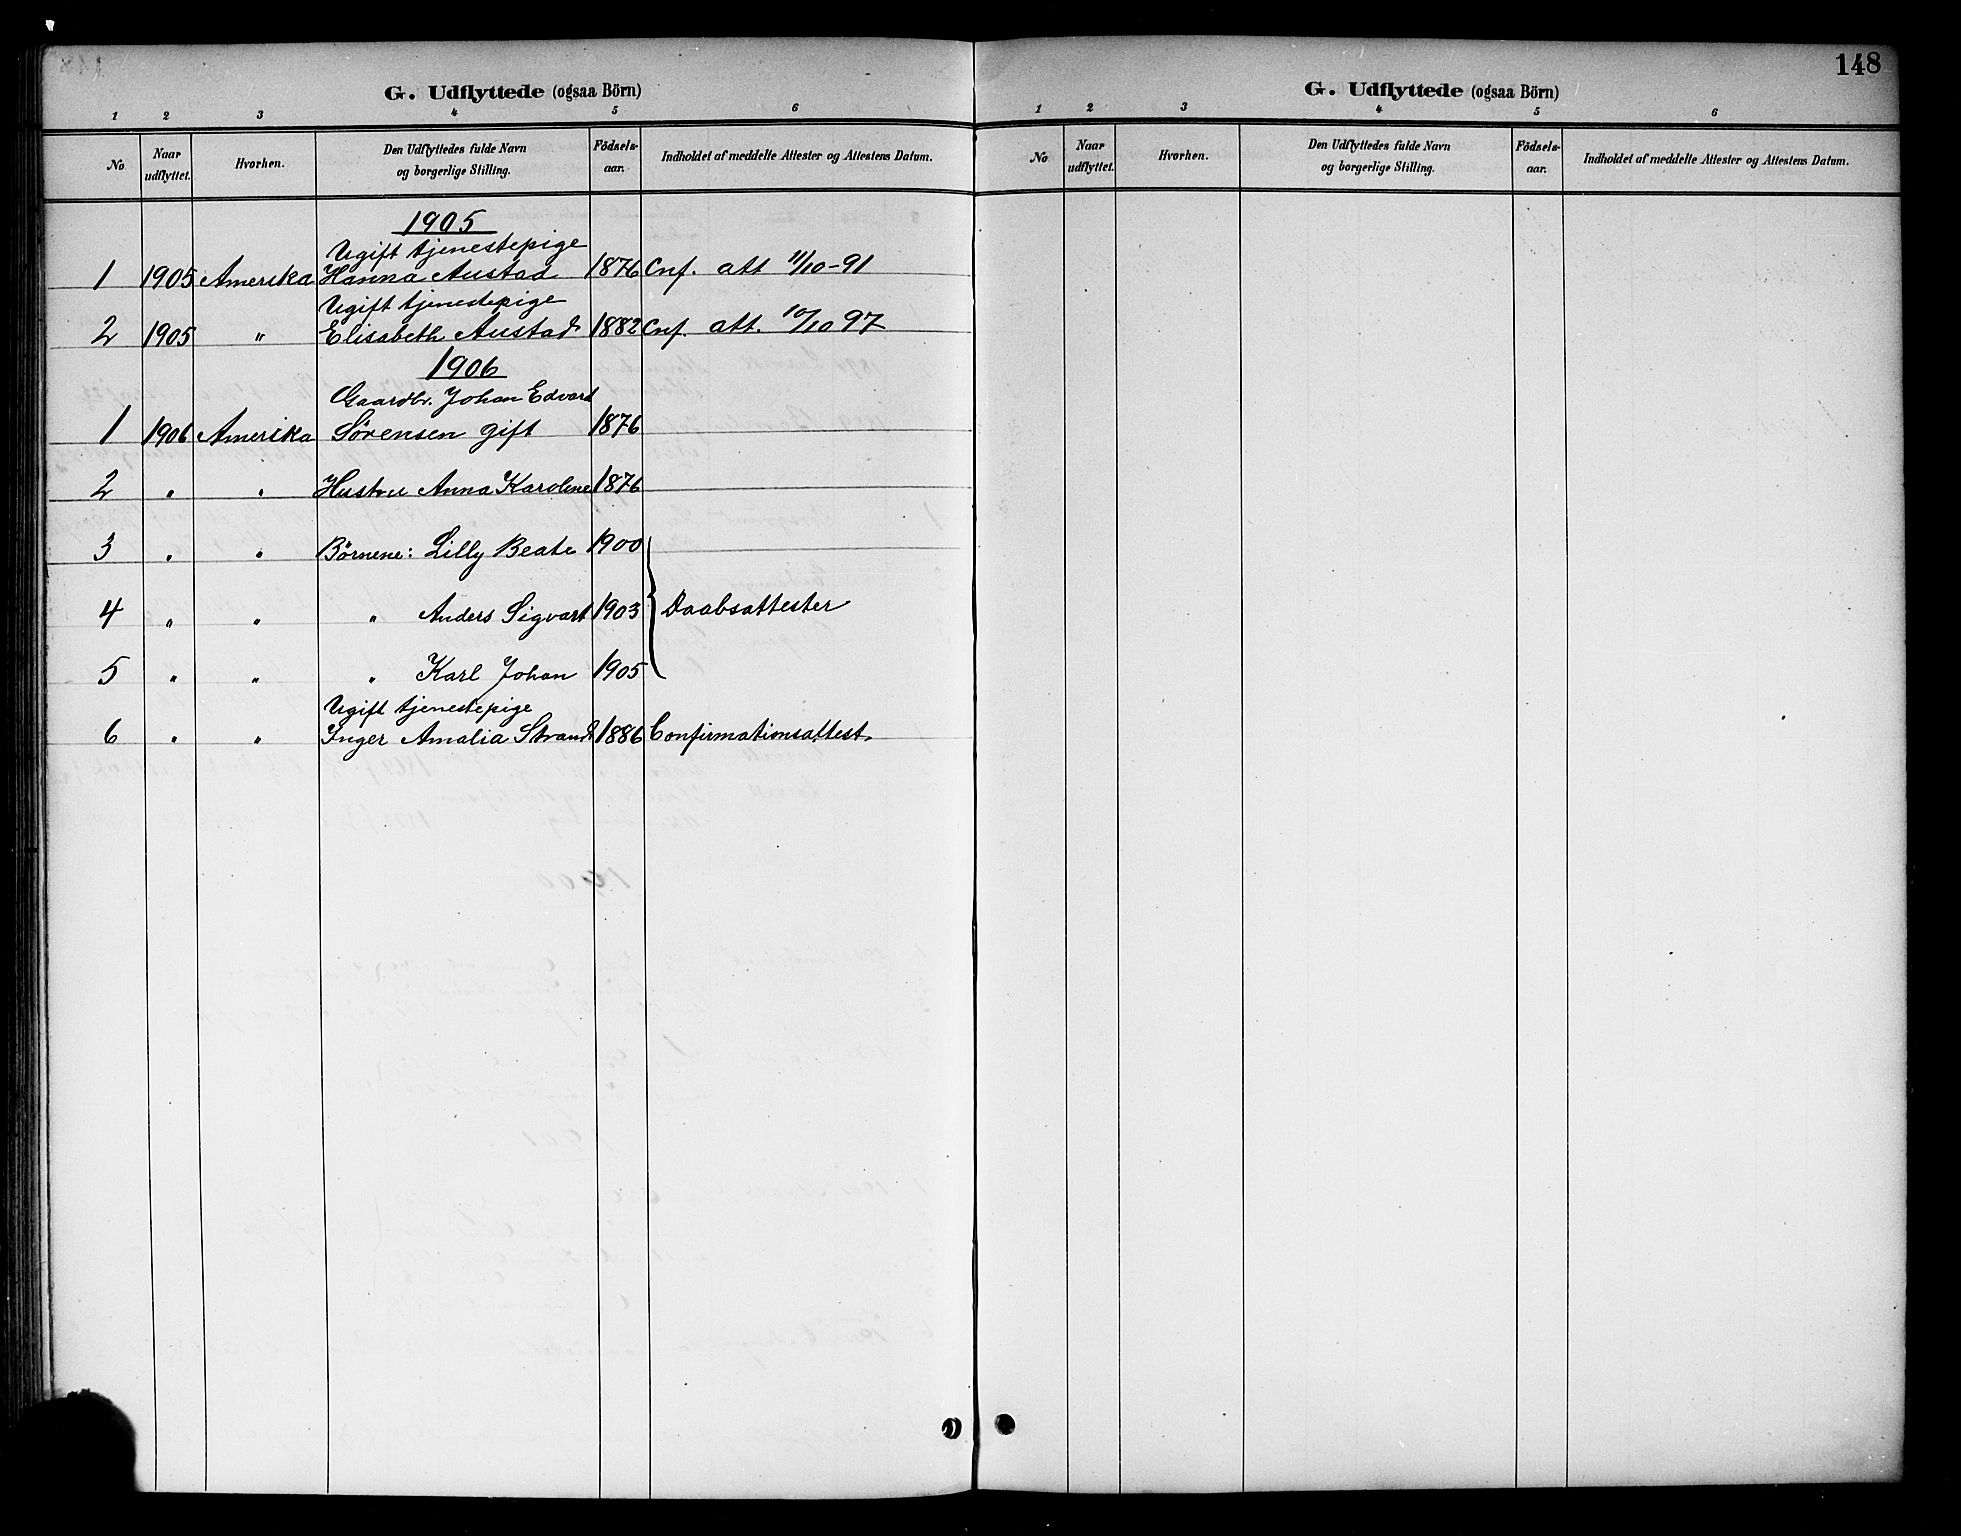 G. Udflyttede (ogsaa Börn)
1 2 3 4 5 6
No Naar udflyttet. Hvorhen. Den Udflyttedes fulde Navn og borgerlige Stilling. Födsels-aar. Indholdet af meddelte Attester og Attestens Datum.
1905
Ugift tjenestepige
1 1905 Amerika Hanna Austad 1876 Cnf. att 11/10-91
Ugift tjenestepige
2 1905 " Elisabeth Austad 1882 Cnf. att. 10/10 97
1906
Gaardbr. Johan Edvard
1 1906 Amerika Sørensen gift 1876
2 " " Hustru Anna Karoline 1876
3 " " Børnene: Lilly Beate 1900
4 " " " Anders Sigvart 1903 Daabsattester
5 " " " Karl Johan 1905
Ugift tjenestepige
6 " " Inger Amalia Strand 1886 Confirmationsattest.
148
G. Udflyttede (ogsaa Börn)
1 2 3 4 5 6
No Naar udflyttet. Hvorhen. Den Udflyttedes fulde Navn og borgerlige Stilling. Födsels-aar. Indholdet af meddelte Attester og Attestens Datum.